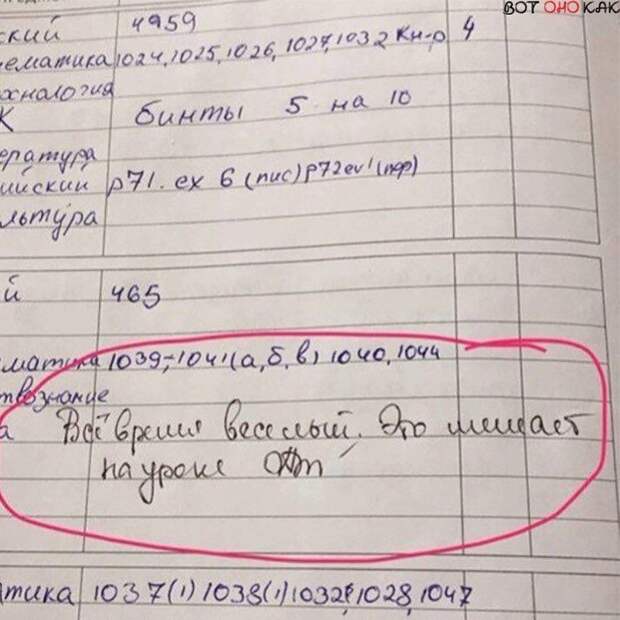 ВОТ ОНО КАК
ский 4959
ематика 1024, 1025, 1026, 1027, 1032 Кн-р 4
хналогия
К бинты 5 на 10
ература
ийский р71. ex 6 (пис) р72 ex1 (пер)
льтура
й 465
матика 1039,-1041(а,б,в) 1040, 1044
твознание
а Всё время веселый. Это мешает
на уроке
атика 1037(1) 1038(1) 1032, 1028, 1047